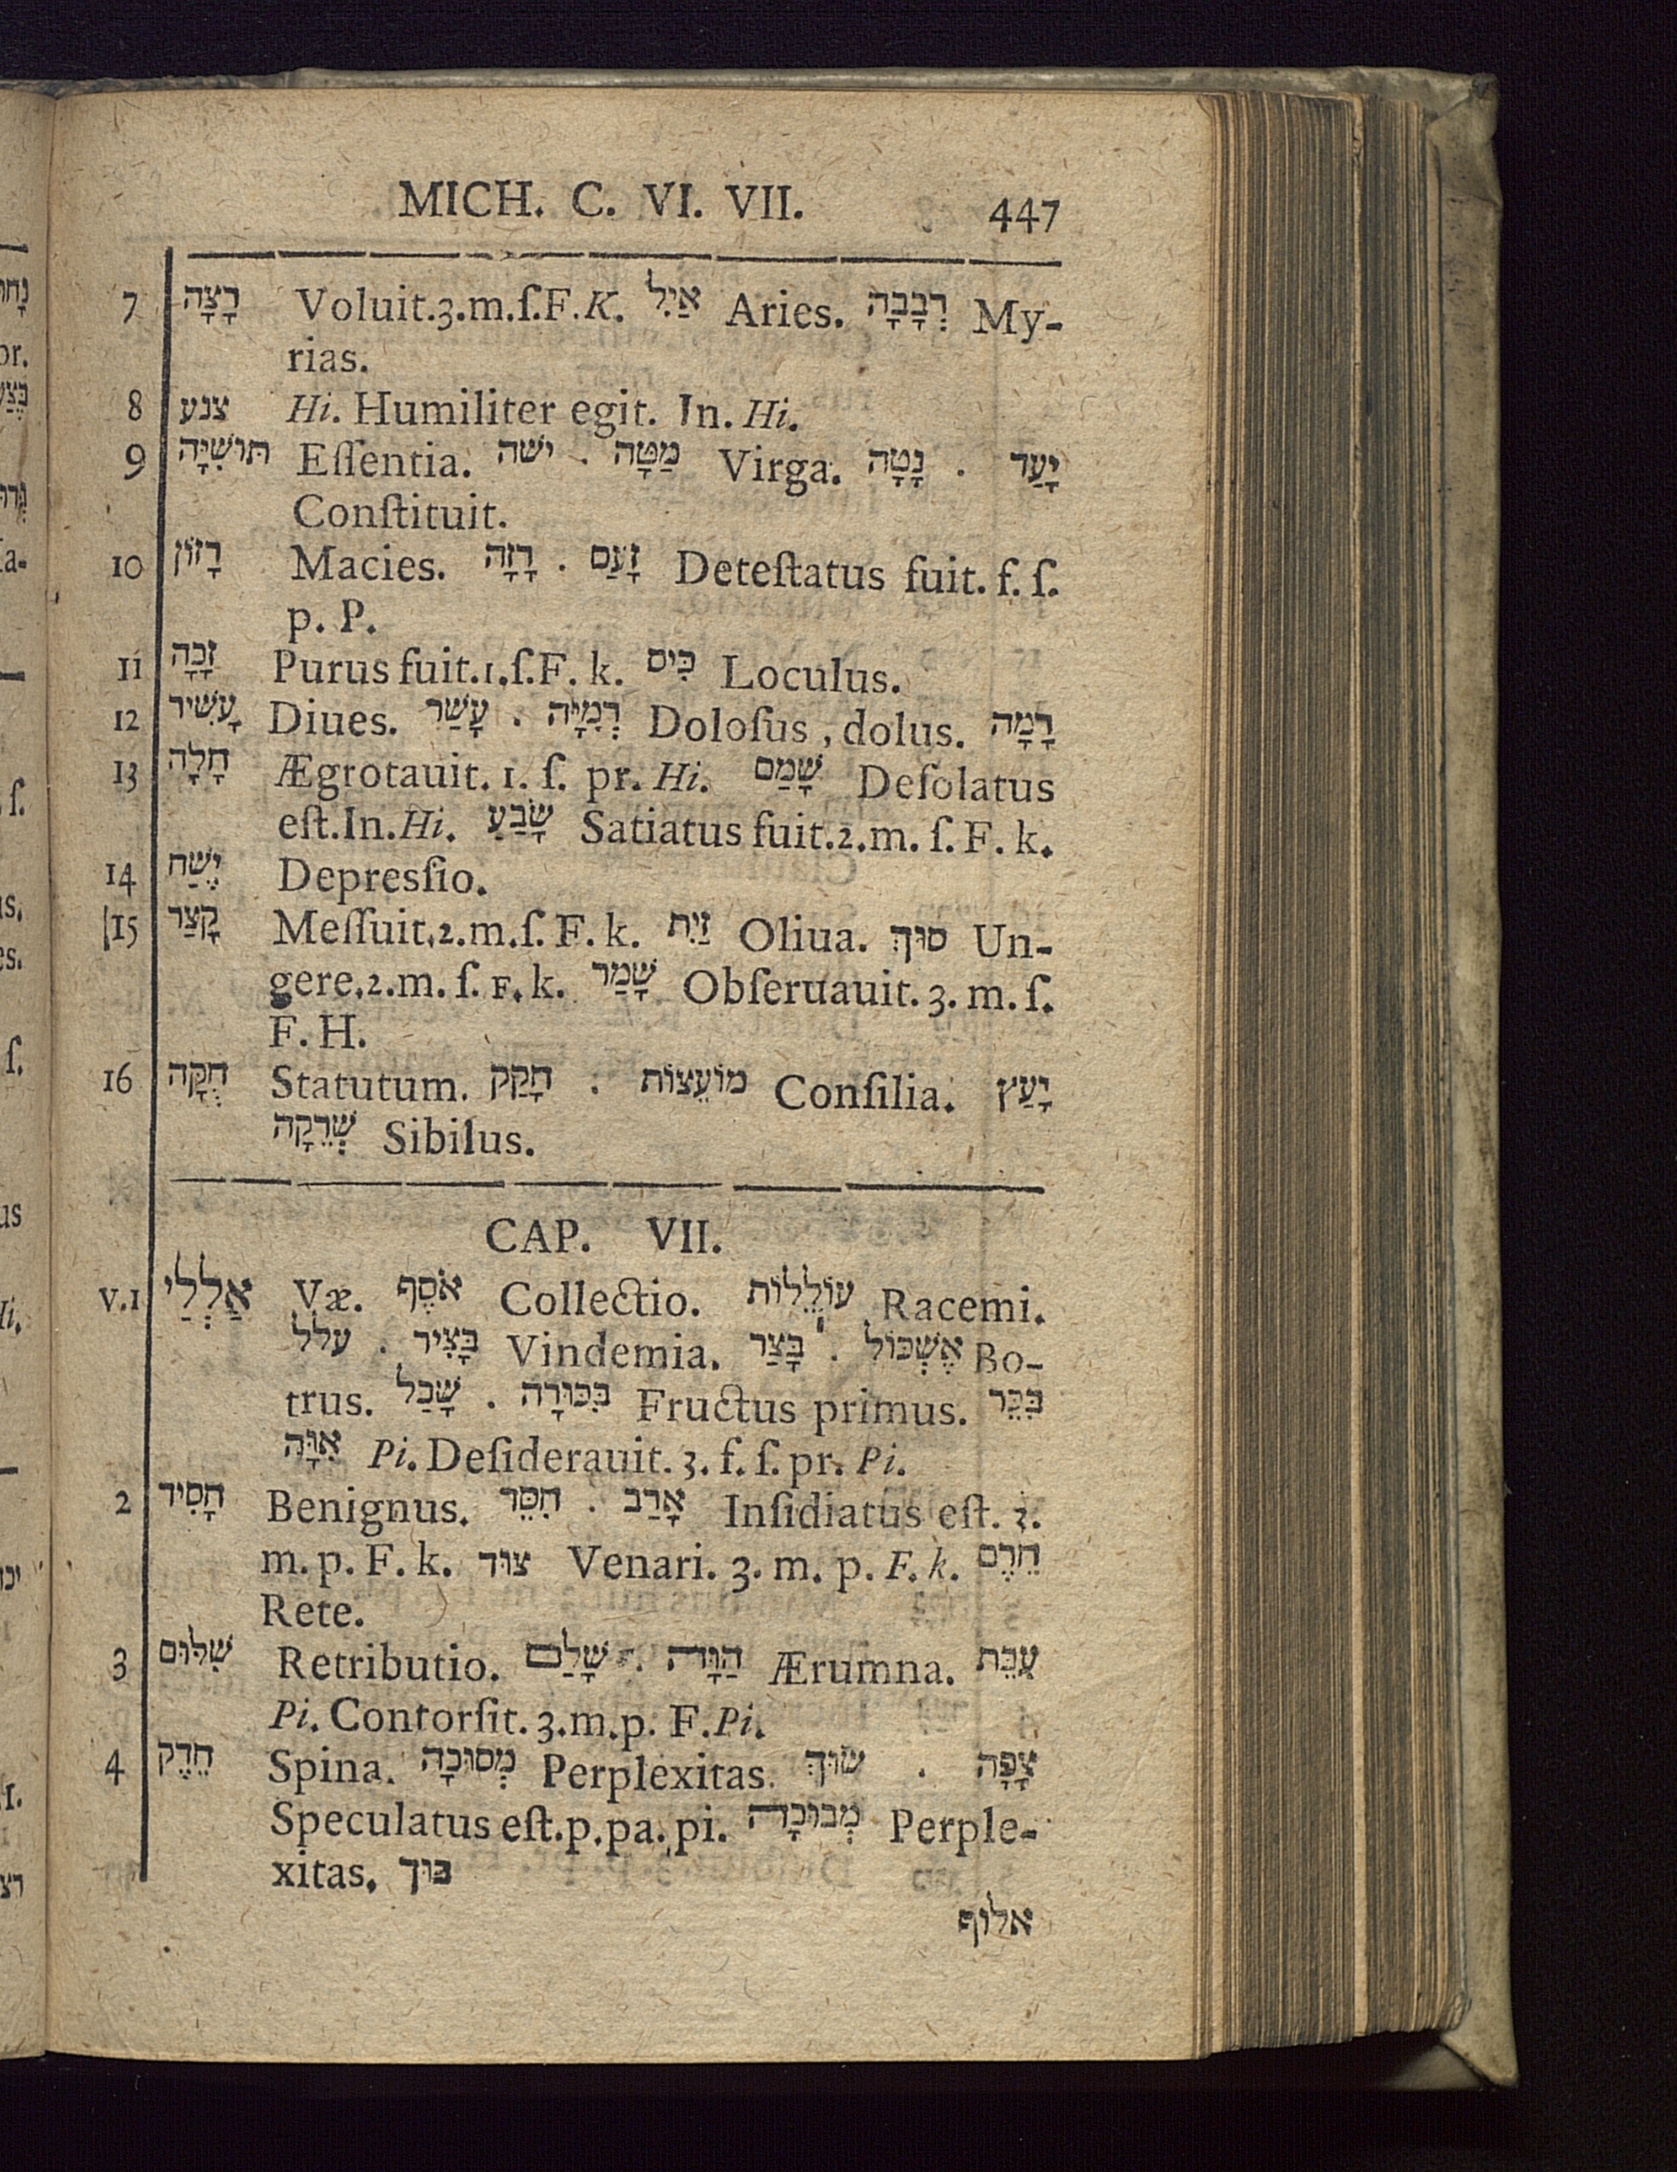 MICH. C. VI. VII. 447
7 רָצָה Voluit.3.m.ſ.F.K. אַיִל Aries. רְבָבָה My-
rias.
8 צנע Hi. Humiliter egit. In. Hi.
9 תּוּשִׁיָּה Eſſentia. ישׁה . מַטֶּה Virga. נָטָה . יָעַד
Conſtituit.
10 רָזוֹן Macies. רָזָה . זָעַם Deteſtatus fuit. f. ſ.
p. P.
11 זָכָה Purus fuit.1.ſ.F. k. כִּיס Loculus.
12 עָשִׁיר Diues. עָשַׁר . רְמִיָּה Doloſus, dolus. רָמָה
13 חָלָה Ægrotauit. 1. ſ. pr. Hi. שָׁמַם Deſolatus
eſt.In.Hi. שָׂבַע Satiatus fuit.2.m. ſ. F. k.
14 יֶשַׁח Depresſio.
15 קָצַר Meſſuit.2.m.ſ. F. k. זַיִת Oliua. סוּךְ Un-
gere.2.m. ſ. F. k. שָׁמַר Obſeruauit. 3. m. ſ.
F. H.
16 חֻקָּה Statutum. חָקַק . מוֹעֵצוֹת Conſilia. יָעַץ
שְׁרֵקָה Sibilus.
CAP. VII.
V.1 אַלְלַי Væ. אֹסֶף Collectio. עוֹלֵלוֹת Racemi.
עלל . בָּצִיר Vindemia. בָּצַר . אֶשְׁכּוֹל Bo-
trus. שָׁכַל . בִּכּוּרָה Fructus primus. בִּכֵּר
אִוָּה Pi. Deſiderauit. 3. f. ſ. pr. Pi.
2 חָסִיד Benignus. חִסֵּר . אָרַב Inſidiatus eſt. 3.
m. p. F. k. צוּד Venari. 3. m. p. F. k. חֵרֶם
Rete.
3 שִׁלּוּם Retributio. שָׁלַם . הַוָּה Ærumna. עִבֵּת
Pi. Contorſit. 3.m.p. F.Pi.
4 חֵדֶק Spina. מְסוּכָה Perplexitas. שׂוּךְ . צָפָה
Speculatus eſt.p.pa.pi. מְבוּכָה Perple-
xitas. בּוּךְ
אלוף